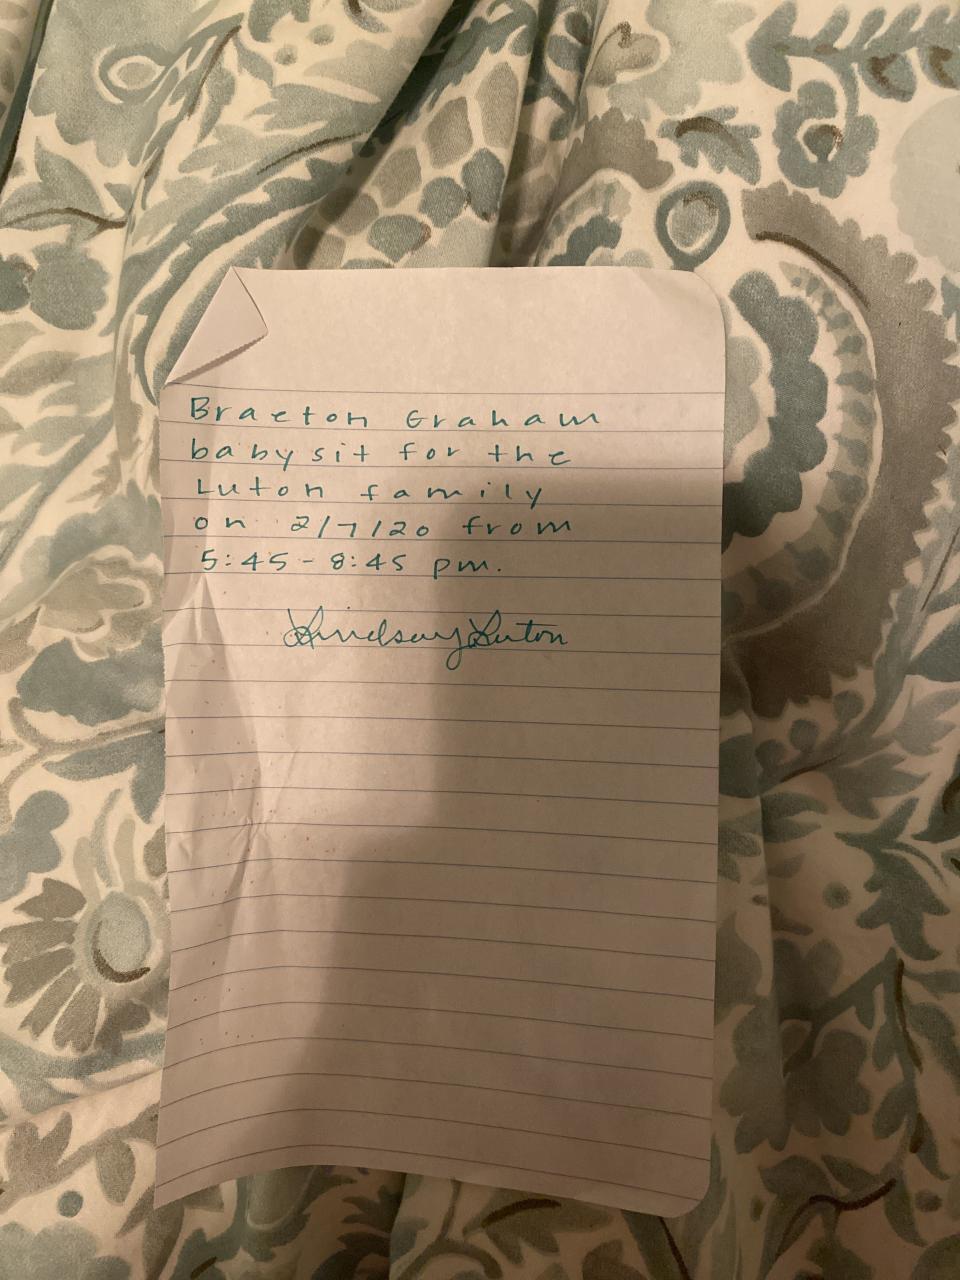 Braeton Graham
babysit for the
Luton family
on 2/7/20 from
5:45-8:45 pm.
Lindsay Luton